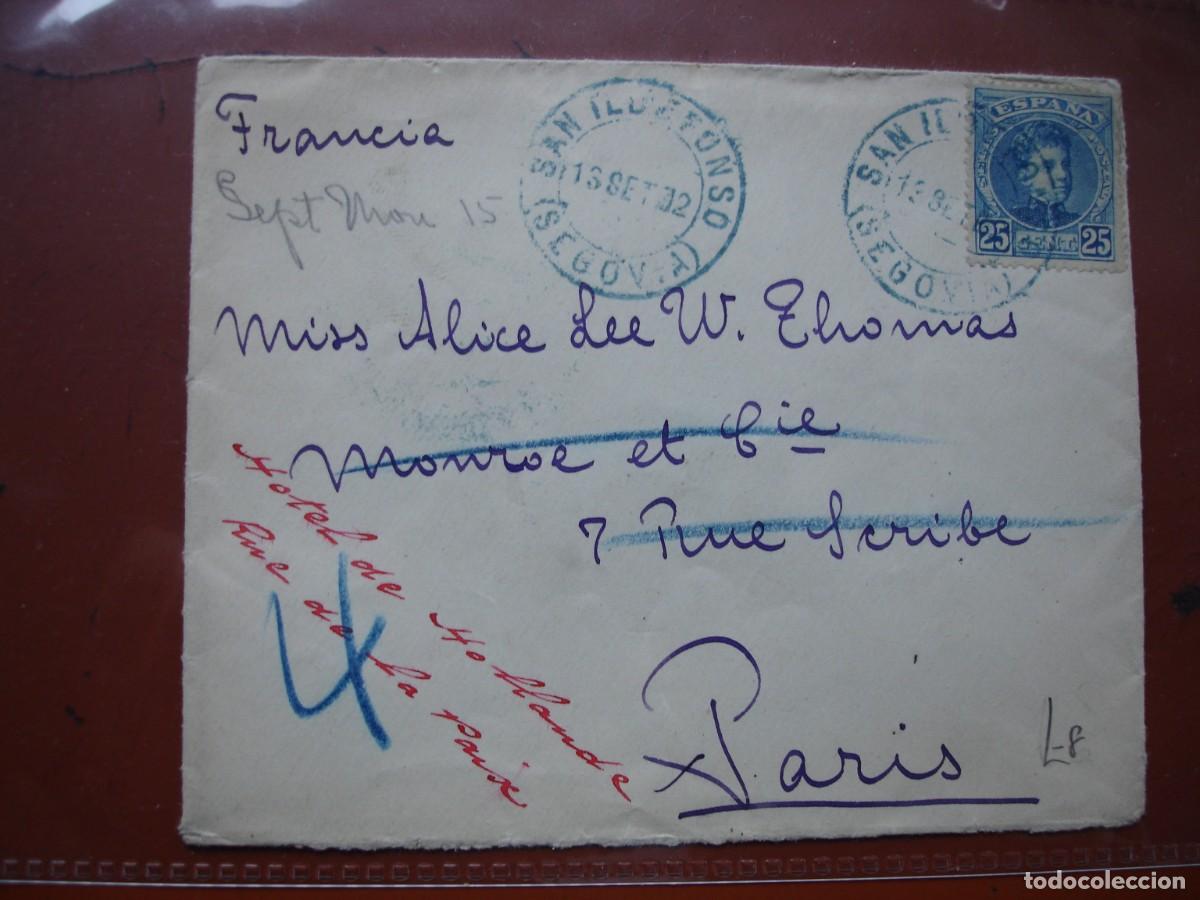 Francia
Sept Mon 15
SAN ILDEFONSO
13 SET 02
(SEGOVIA)
SAN ILD
13 SET
(SEGOVIA)
ESPAÑA
25 CENT 25
Miss Alice Lee W. Thomas
Monroe et Cie
7 Rue Scribe
Paris
Hotel de Hollande
Rue de la paix
4
L-8
todocoleccion